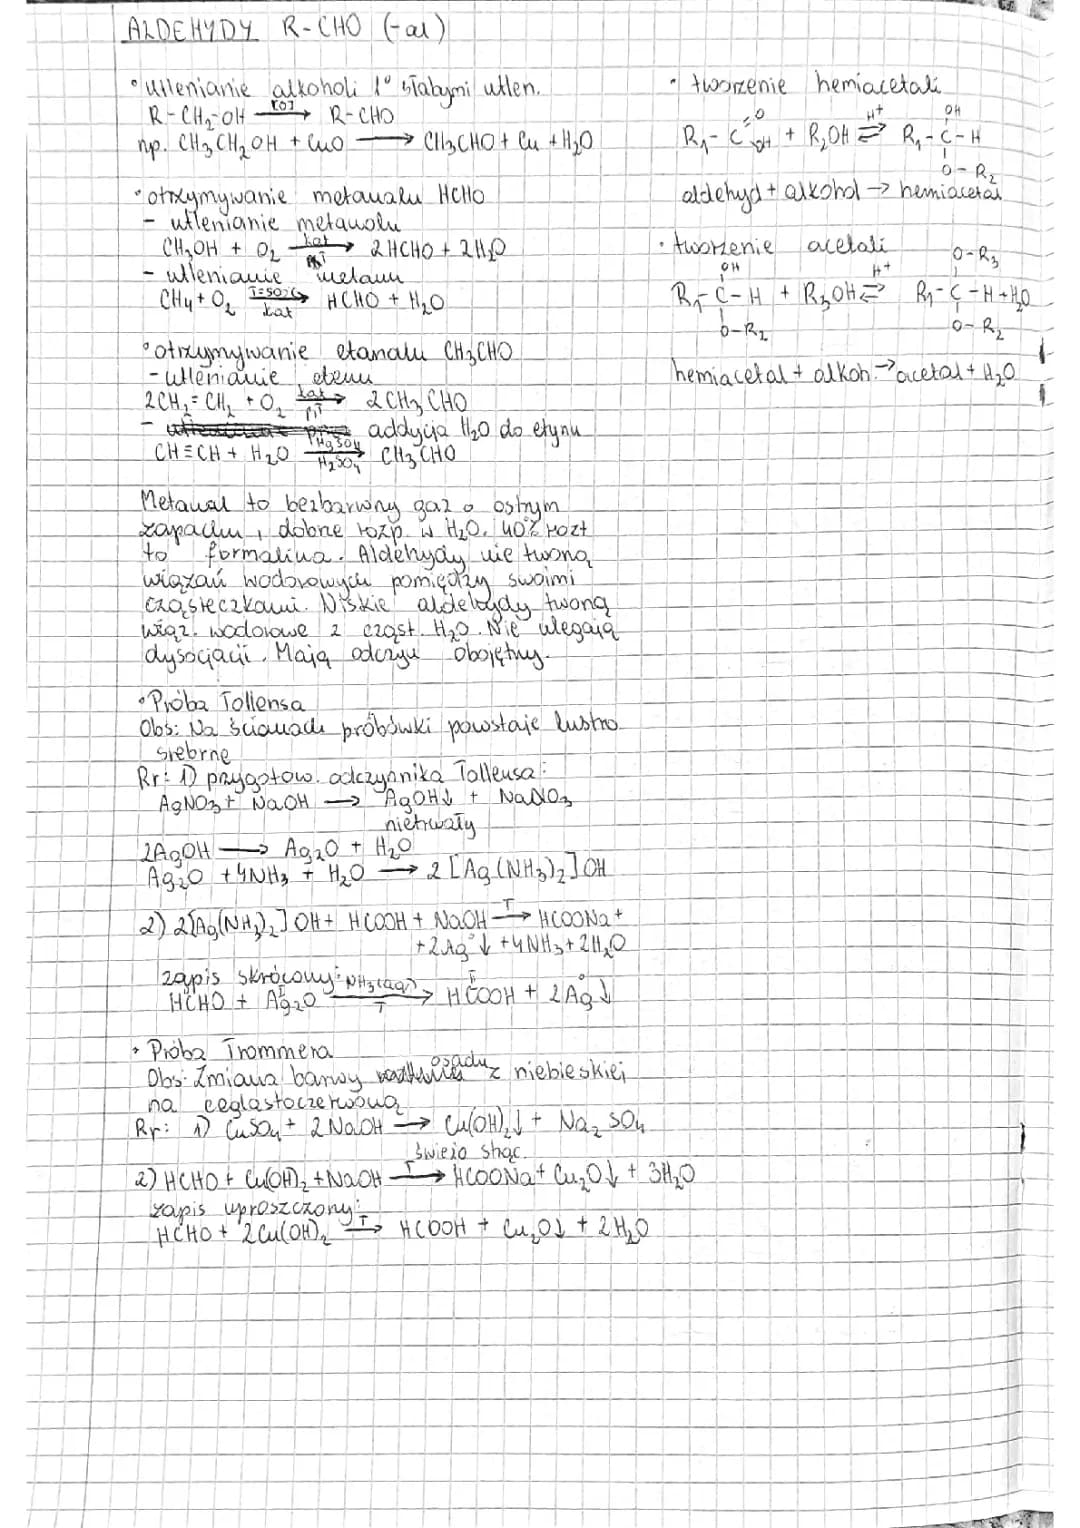 ALDEHYDY R-CHO (-al)
• utlenianie alkoholi 1° słabymi utlen.
R-CH₂-OH —[O]→ R-CHO
np. CH₃CH₂OH + CuO ⟶ CH₃CHO + Cu + H₂O
• otrzymywanie metanalu HCHO
- utlenianie metanolu
CH₃OH + O₂ —kat→ 2HCHO + 2H₂O
- utlenianie metanu
CH₄ + O₂ —T=50 kat→ HCHO + H₂O
• otrzymywanie etanalu CH₃CHO
- utlenianie etenu
2CH₂=CH₂ + O₂ —kat p,T→ 2CH₃CHO
- addycja H₂O do etynu
CH≡CH + H₂O —HgSO₄ H₂SO₄→ CH₃CHO
Metanal to bezbarwny gaz o ostrym
zapachu, dobrze rozp. w H₂O. 40% rozt
to formalina. Aldehydy nie tworzą
wiązań wodorowych pomiędzy swoimi
cząsteczkami. Niskie aldehydy tworzą
wiąz. wodorowe z cząst. H₂O. Nie ulegają
dysocjacji. Mają odczyn obojętny.
• Próba Tollensa
Obs: Na ścianach próbówki powstaje lustro
srebrne
Rr: 1) przygotow. odczynnika Tollensa:
AgNO₃ + NaOH → AgOH↓ + NaNO₃
nietrwały
2AgOH ⟶ Ag₂O + H₂O
Ag₂O + 4NH₃ + H₂O ⟶ 2[Ag(NH₃)₂]OH
2) 2[Ag(NH₃)₂]OH + HCOOH + NaOH —T→ HCOONa +
+ 2Ag°↓ + 4NH₃ + 2H₂O
zapis skrócony:
HCHO + Ag₂O —NH₃(aq) T→ HCOOH + 2Ag↓
• Próba Trommera
Obs: Zmiana barwy osadu z niebieskiej
na ceglastoczerwoną
Rr: 1) CuSO₄ + 2NaOH → Cu(OH)₂↓ + Na₂SO₄
świeżo strąc.
2) HCHO + Cu(OH)₂ + NaOH —T→ HCOONa + Cu₂O↓ + 3H₂O
zapis uproszczony:
HCHO + 2Cu(OH)₂ —T→ HCOOH + Cu₂O↓ + 2H₂O
• tworzenie hemiacetali
OH
R₁-C=O + R₂OH ⇌ H⁺ R₁-C-H
O-R₂
aldehyd + alkohol → hemiacetal
• tworzenie acetali
OH O-R₃
R₁-C-H + R₃OH ⇌ H⁺ R₁-C-H + H₂O
O-R₂ O-R₂
hemiacetal + alkoh. → acetal + H₂O